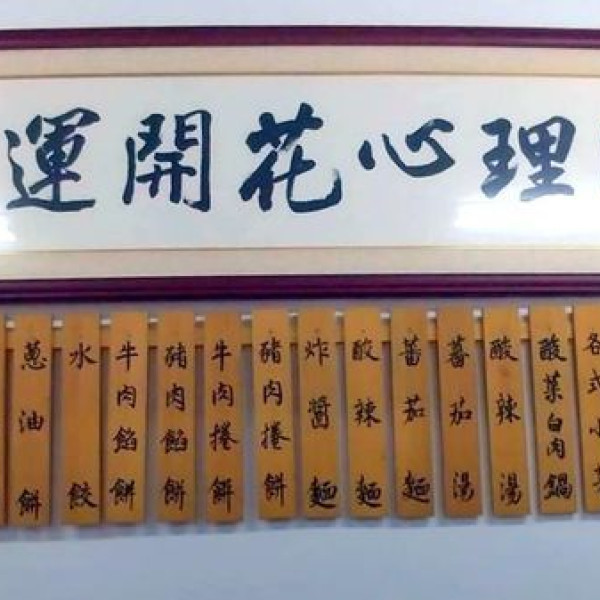 運開花心理
蔥油餅
水餃
牛肉餡餅
豬肉餡餅
牛肉捲餅
豬肉捲餅
炸醬麵
酸辣麵
蕃茄麵
蕃茄湯
酸辣湯
酸菜白肉鍋
各式小菜